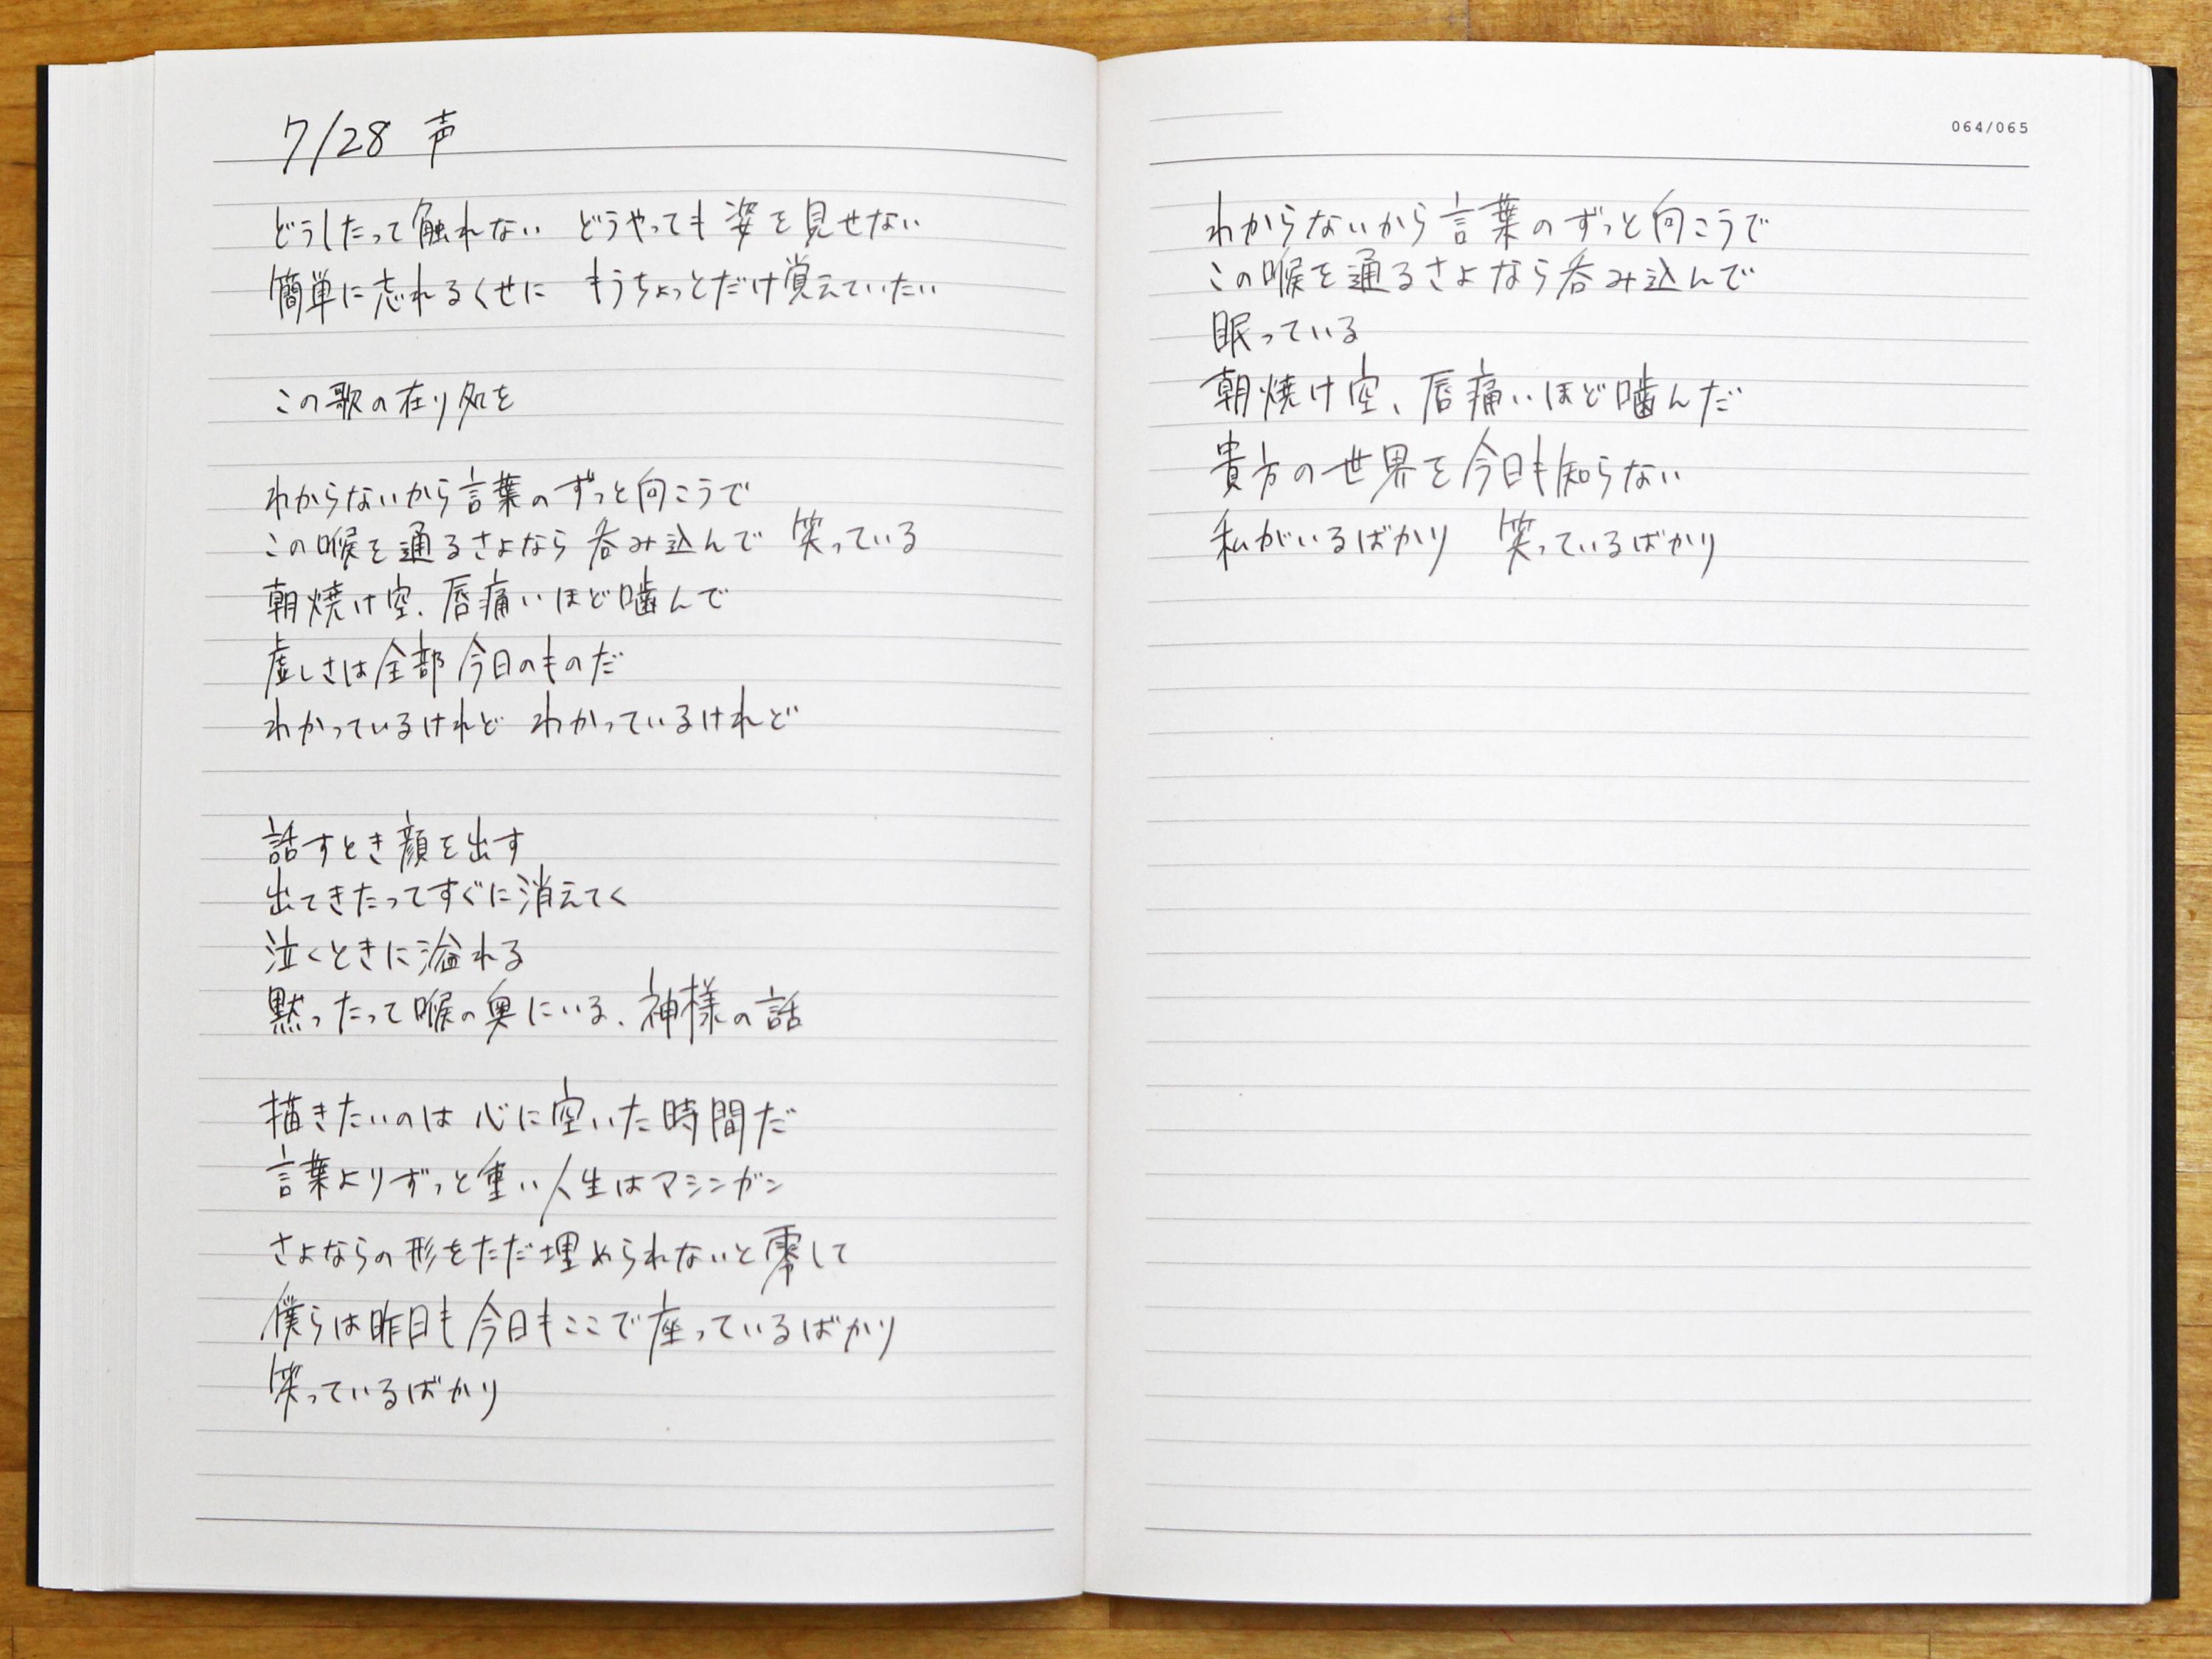 7/28 声
どうしたって触れない どうやっても姿を見せない
簡単に忘れるくせに もうちょっとだけ覚えていたい
この歌の在り処を
わからないから言葉のずっと向こうで
この喉を通るさよなら呑み込んで 笑っている
朝焼け空、唇痛いほど噛んで
虚しさは全部今日のものだ
わかっているけれど わかっているけれど
話すとき顔を出す
出てきたってすぐに消えてく
泣くときに溢れる
黙ったって喉の奥にいる、神様の話
描きたいのは心に空いた時間だ
言葉よりずっと重い人生はマシンガン
さよならの形をただ埋められないと零して
僕らは昨日も今日もここで座っているばかり
笑っているばかり
064/065
わからないから言葉のずっと向こうで
この喉を通るさよなら呑み込んで
眠っている
朝焼け空、唇痛いほど噛んだ
貴方の世界を今日も知らない
私がいるばかり 笑っているばかり